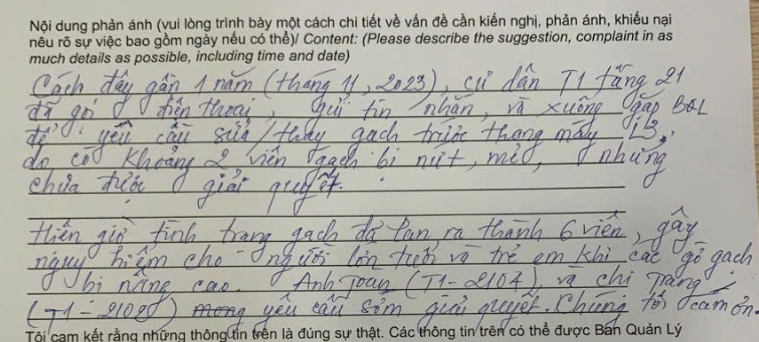 Nội dung phản ánh (vui lòng trình bày một cách chi tiết về vấn đề cần kiến nghị, phản ánh, khiếu nại
nêu rõ sự việc bao gồm ngày nếu có thể)/ Content: (Please describe the suggestion, complaint in as
much details as possible, including time and date)
Cách đây gần 1 năm (tháng 11, 2023), cư dân T1 tầng 21
đã gọi điện thoại, gửi tin nhắn, và xuống gặp BQL
để yêu cầu sửa/thay gạch trước thang máy L3,
do có khoảng 2 viên gạch bị nứt, mẻ, nhưng
chưa được giải quyết.
Hiện giờ tình trạng gạch đã lan ra thành 6 viên, gây
nguy hiểm cho người lớn tuổi và trẻ em khi các gờ gạch
bị nâng cao. Anh Toàn (T1-2107) và chị Trang
(T1-2102) mong yêu cầu sớm giải quyết. Chúng tôi cảm ơn.
Tôi cam kết rằng những thông tin trên là đúng sự thật. Các thông tin trên có thể được Ban Quản Lý